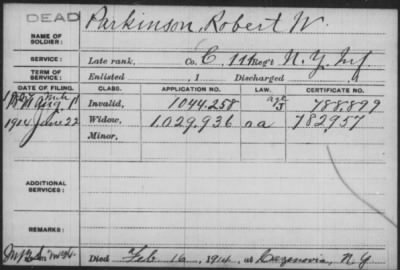 DEAD
NAME OF SOLDIER: Parkinson, Robert W.
SERVICE: Late rank, Co. C, 111 Reg't N. Y. Inf
TERM OF SERVICE: Enlisted , 1 Discharged , 1
DATE OF FILING. CLASS. APPLICATION NO. LAW. CERTIFICATE NO.
Aug Invalid, 1044.258 788.899
1914 June 22 Widow, 1.029.936 782957
Minor,
ADDITIONAL SERVICES:
REMARKS:
Died Feb 16, 1914, at Cazenovia, N. Y